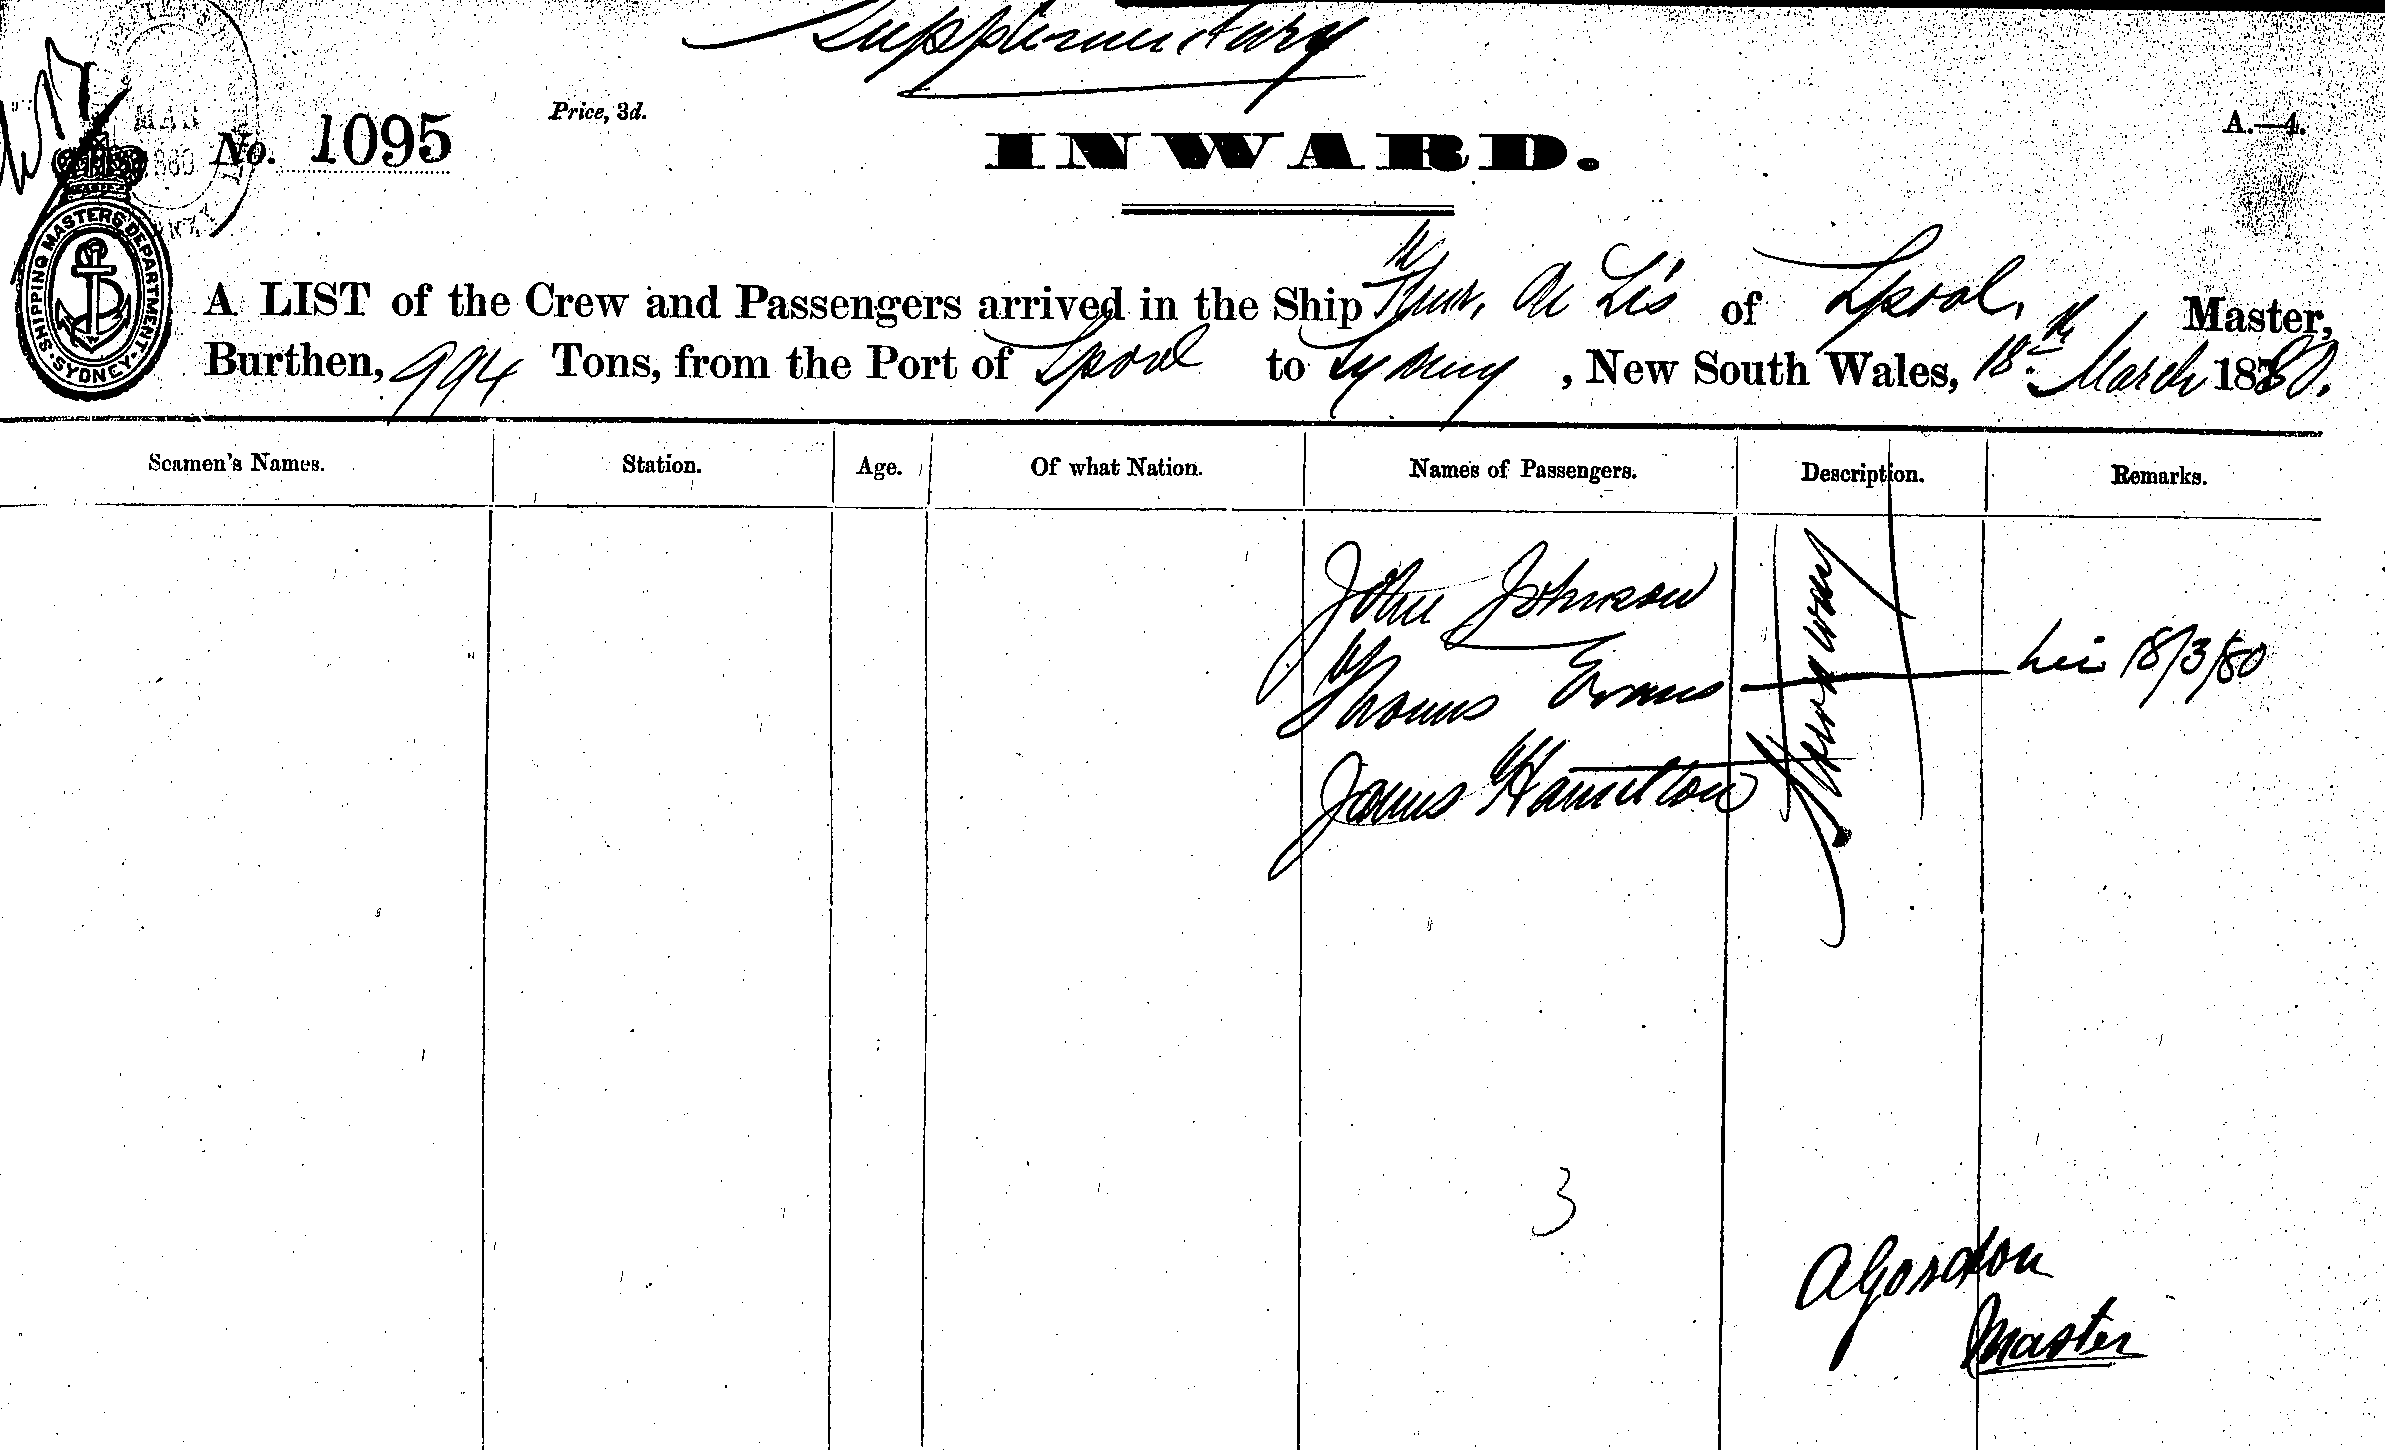 Supplementary
No. 1095
Price, 3d.
A.—4.
INWARD.
SHIPPING MASTERS DEPARTMENT SYDNEY
A LIST of the Crew and Passengers arrived in the Ship Fleur de Lis of Lpool, Master,
Burthen, 994 Tons, from the Port of Lpool to Sydney, New South Wales, 18th March 1880.
Seamen's Names. Station. Age. Of what Nation. Names of Passengers. Description. Remarks.
John Johnson
Thomas Evans 18/3/80
James Hamilton
Stowaway
3
A Gordon
Master